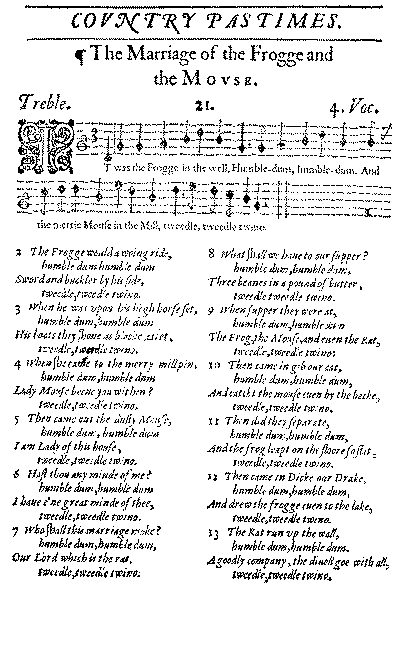 COVNTRY PASTIMES.
¶ The Marriage of the Frogge and
the MOVSE.
Treble. 21. 4. Voc.
T was the Frogge in the well, Humble-dum, humble-dum. And
the merrie Mouse in the Mill, tweedle, tweedle twino.
2 The Frogge would a woing ride,
humble dum humble dum
Sword and buckler by his side,
tweedle, tweedle twino.
3 When he was vpon his high horse set,
humble dum, humble dum
His boots they shone as blacke as iet.
tweedle, tweedle twino.
4 When she came to the merry mill pin,
humble dum, humble dum
Lady Mouse beene you within?
tweedle, tweedle twino.
5 Then came out the dusty Mouse,
humble dum, humble dum
I am Lady of this house,
tweedle, tweedle twino.
6 Hast thou any minde of me?
humble dum, humble dum
I haue e'ne great minde of thee,
tweedle, tweedle twino.
7 Who shall this marriage make?
humble dum, humble dum,
Our Lord which is the rat,
tweedle, tweedle twino.
8 What shall we haue to our supper?
humble dum, humble dum,
Three beanes in a pound of butter,
tweedle tweedle twino.
9 When supper they were at,
humble dum, humble dum
The Frog, the Mouse, and euen the Rat,
tweedle, tweedle twino.
10 Then came in gib our cat,
humble dum, humble dum,
And catcht the mouse euen by the backe,
tweedle, tweedle twino.
11 Then did they separate,
humble dum, humble dum,
And the frog leapt on the floore so flat:
tweedle, tweedle twino.
12 Then came in Dicke our Drake,
humble dum, humble dum,
And drew the frogge euen to the lake,
tweedle, tweedle twino.
13 The Rat run vp the wall,
humble dum, humble dum.
A goodly company, the diuell goe with all,
tweedle, tweedle twino.